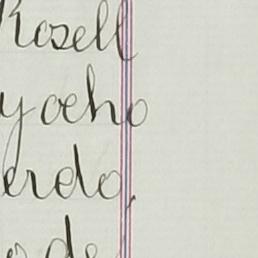 Rosell
y ocho
erdo,
de